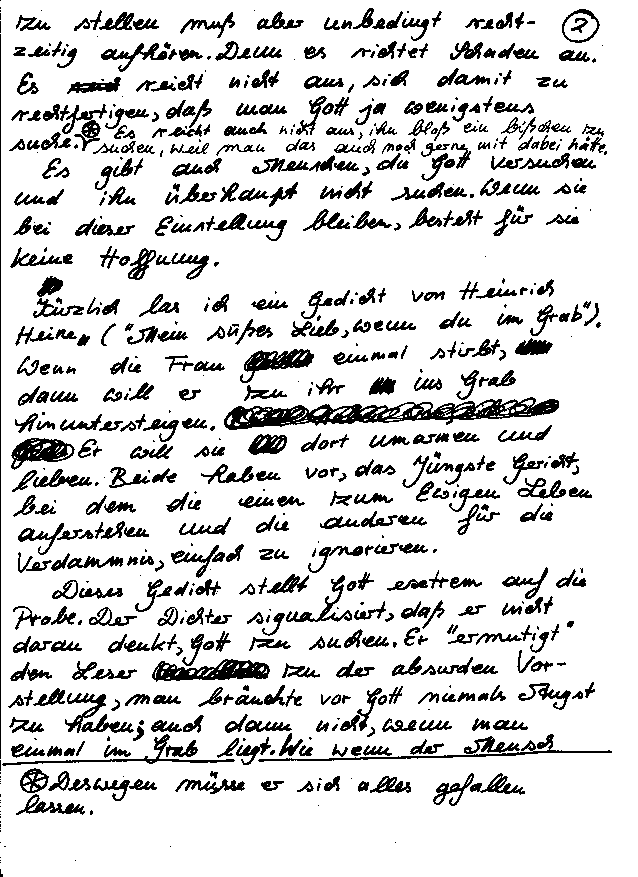 zu stellen muß aber unbedingt recht-
2
zeitig aufhören. Denn es richtet Schaden an.
Es reicht nicht aus, sich damit zu
rechtfertigen, daß man Gott ja wenigstens
suche. ⊛ Es reicht auch nicht aus, ihn bloß ein bißchen zu
suchen, weil man das auch noch gerne mit dabei hätte.
Es gibt auch Menschen, die Gott versuchen
und ihn überhaupt nicht suchen. Wenn sie
bei dieser Einstellung bleiben, besteht für sie
keine Hoffnung.
Kürzlich las ich ein Gedicht von Heinrich
Heine ("Mein süßes Lieb, wenn du im Grab").
Wenn die Frau einmal stirbt,
dann will er zu ihr ins Grab
hinuntersteigen.
Er will sie dort umarmen und
lieben. Beide haben vor, das Jüngste Gericht,
bei dem die einen zum Ewigen Leben
auferstehen und die anderen für die
Verdammnis, einfach zu ignorieren.
Dieses Gedicht stellt Gott exetrem auf die
Probe. Der Dichter signalisiert, daß er nicht
daran denkt, Gott zu suchen. Er "ermutigt"
den Leser zu der absurden Vor-
stellung, man bräuchte vor Gott niemals Angst
zu haben; auch dann nicht, wenn man
einmal im Grab liegt. Wie wenn der Mensch
⊛ Deswegen müsse er sich alles gefallen
lassen.